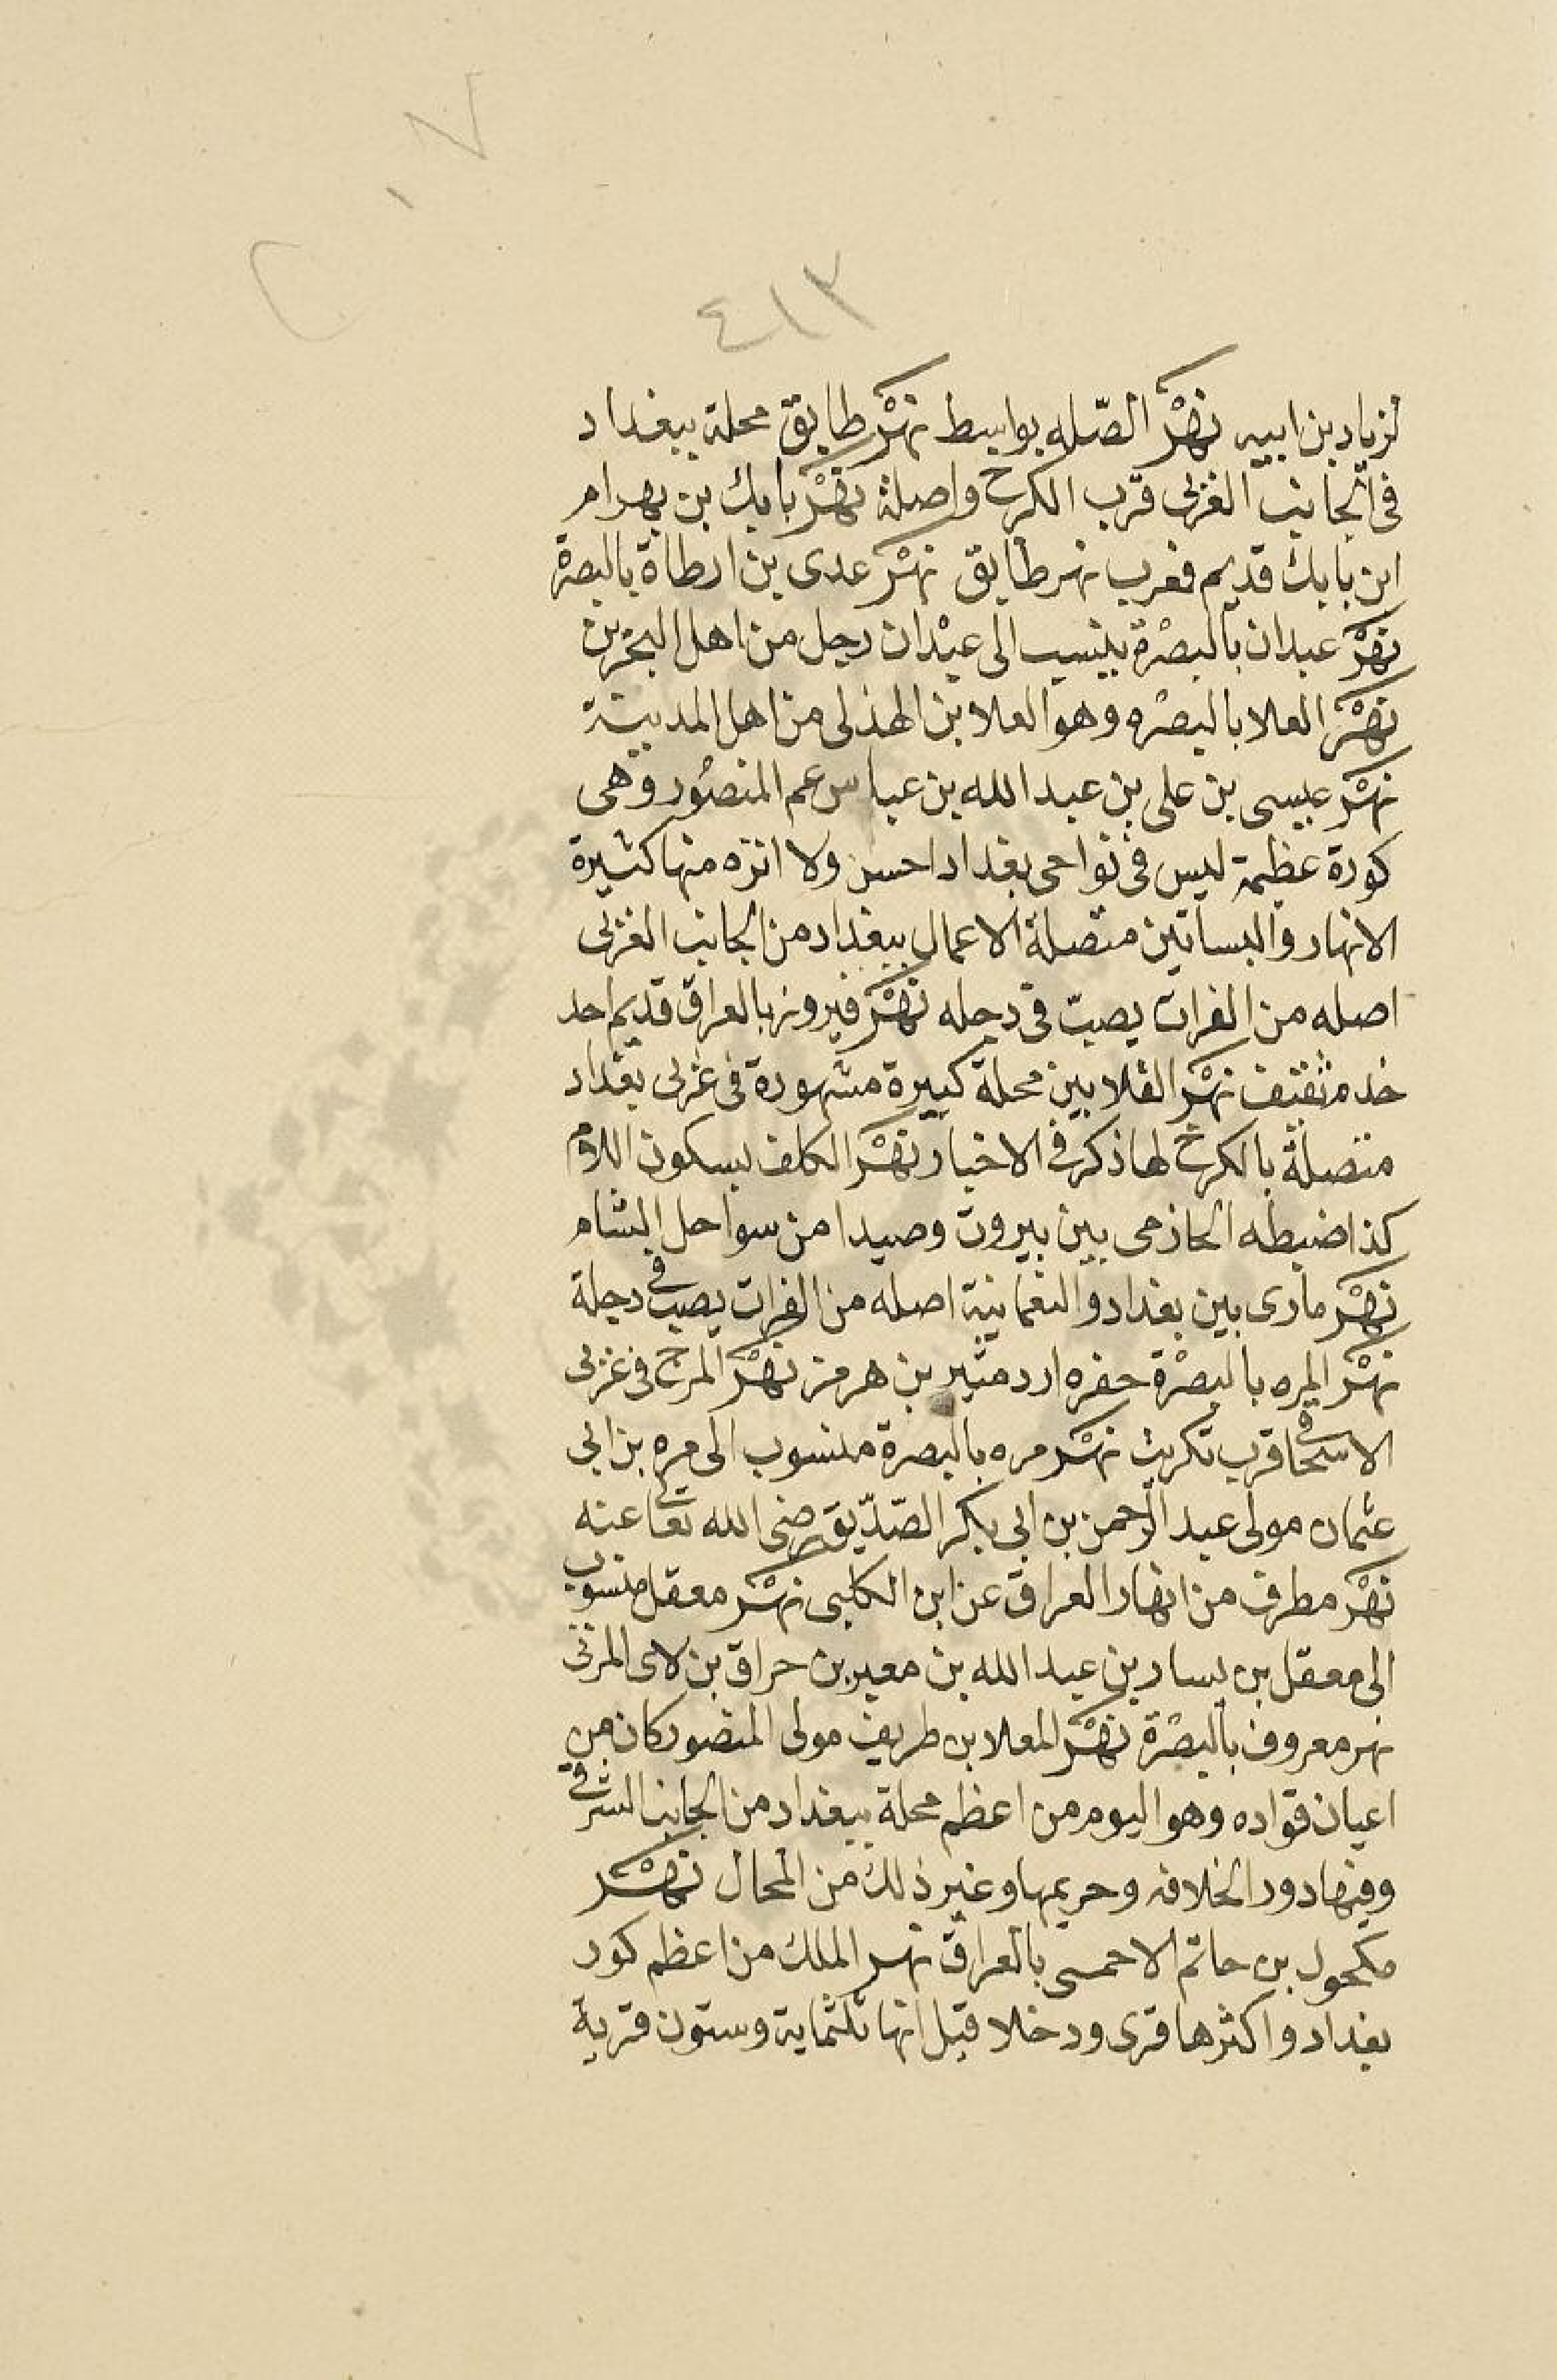 ٤١٣
لزياد بن ابيه نهر الصّله بواسط نهر طابق محلة ببغداد
فى الجانب الغربى قرب الكرخ واصله نهر بابك بن بهرام
ابن بابك قديم فعرب نهر طابق نهر عدى بن ارطاة بالبصرة
نهر عبدان بالبصرة ينسب الى عبدان رجل من اهل البحرين
نهر العلا بالبصره وهو العلا بن الهذلى من اهل المدينة
نهر عيسى بن على بن عبد الله بن عباس عم المنصور وهى
كورة عظيمة ليس فى نواحى بغداد احسن ولا انزه منها كثيرة
الانهار والبساتين متصلة الاعمال ببغداد من الجانب الغربى
اصله من الفرات يصبّ فى دجله نهر فيروز بالعراق قديم احد
خد م ثقيف نهر القلابين محلة كبيرة مشهورة فى غربى بغداد
متصلة بالكرخ لها ذكر فى الاخبار نهر الكلف بسكون اللام
كذا ضبطه الحازمى بين بيروت وصيدا من سواحل الشام
نهر مارى بين بغداد والنعمانية اصله من الفرات يصب فى دجلة
نهر المره بالبصرة حفره اردمثير بن هرمز نهر المرج فى غربى
الاسحاقى قرب تكريت نهر مره بالبصرة منسوب الى مره بن ابى
عثمان مولى عبد الرحمن بن ابى بكر الصّدّيق رضى الله تعالى عنه
نهر مطرف من انهار العراق عن ابن الكلبى نهر معقل منسوب
الى معقل بن يسار بن عبد الله بن معير بن حراق بن لاى المزنى
نهر معروف بالبصرة نهر المعلا بن طريف مولى المنصور كان من
اعيان قواده وهو اليوم من اعظم محلة ببغداد من الجانب الشرقى
وفيها دور الخلافه وحريمها وغير ذلك من المحال نهر
مكحول بن حاتم الاحمسى بالعراق نهر الملك من اعظم كور
بغداد واكثرها قرى ودخلا قيل انها ثلثماية وستون قرية